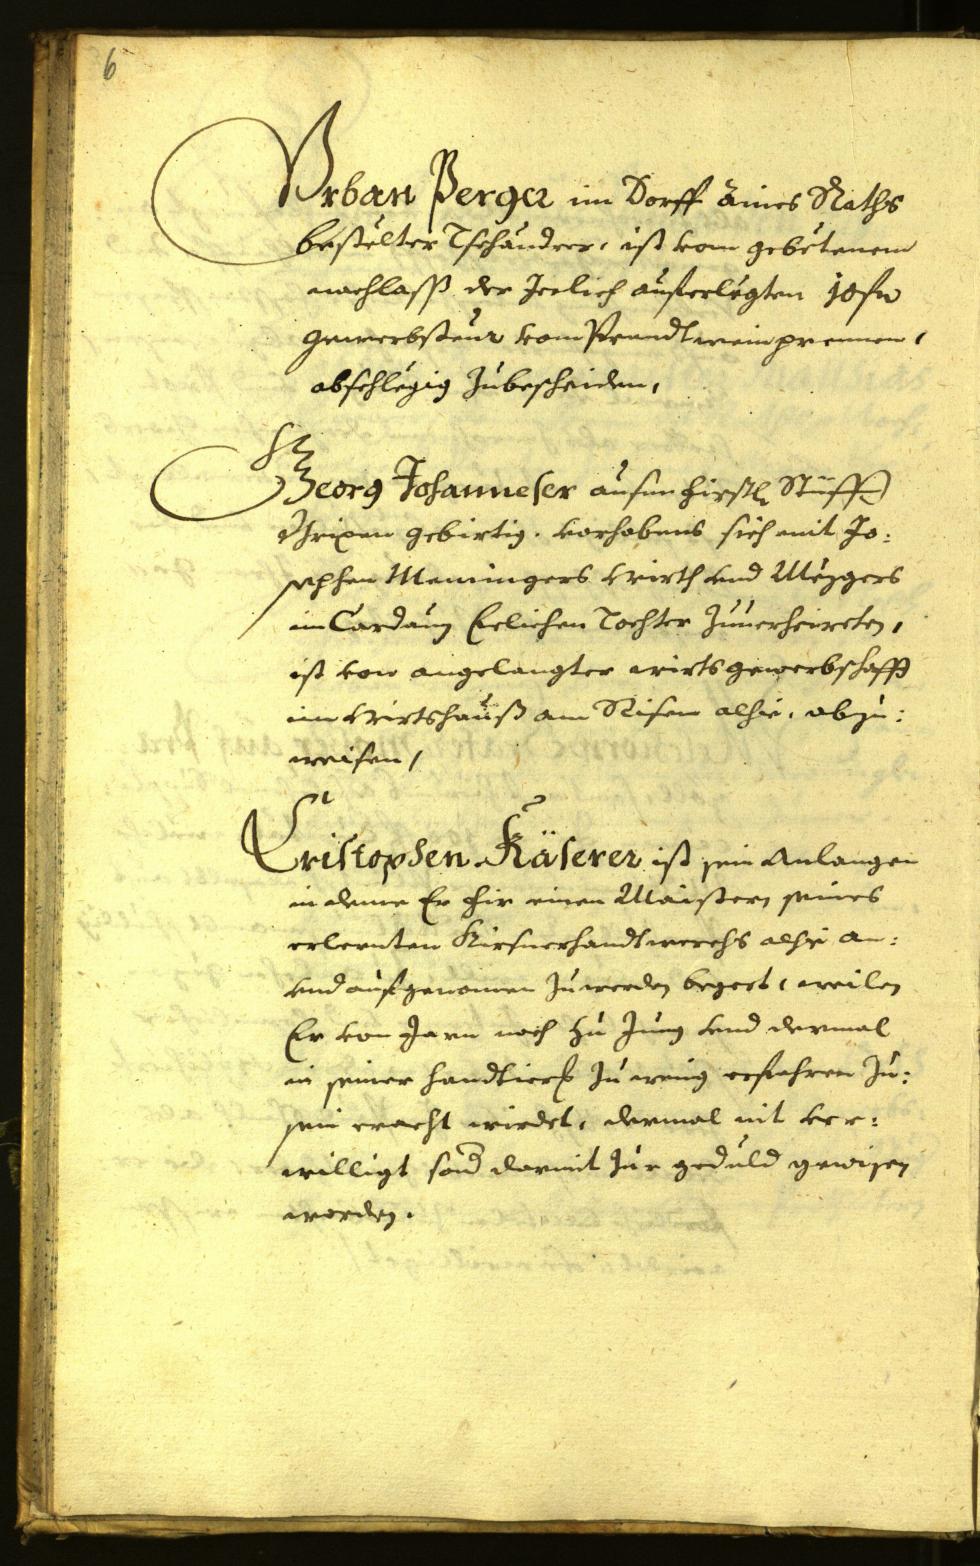 6
Vrban Perger im Dorff aines Raths
bestelter Tschandrer, ist vom gebetenem
nachlass der Jerlich auferlegten 10 fr
gewerbsteur vom Prandtweinprennen,
abschlegig Zubescheiden,
Georg Johanneser aus im Firstl Stüfft
Brixen gebirtig. vorhabens sich mit Jo:
sephen Memingers Wirth vnd Mezgers
in Cardaun Eelichen Tochter Zuuerheireten,
ist von angelangter wirtsgewerbschafft
im Wirtshauß am Risen alhie, abzu:
weisen,
Cristophen Käserer ist sein Anlangen
in deme Er fir einen Maistern seines
erlernten Kirsnerhandtwerchs alhie an:
vnd aufgenomen Zuwerden begert, weilen
Er von Jarn noch zu Jung vnd dermal
in seiner handtierg Zu wenig erfahren Zu:
sein eracht wirdet, dermal nit ver:
willigt sond darmit Zur geduld gewisen
worden.